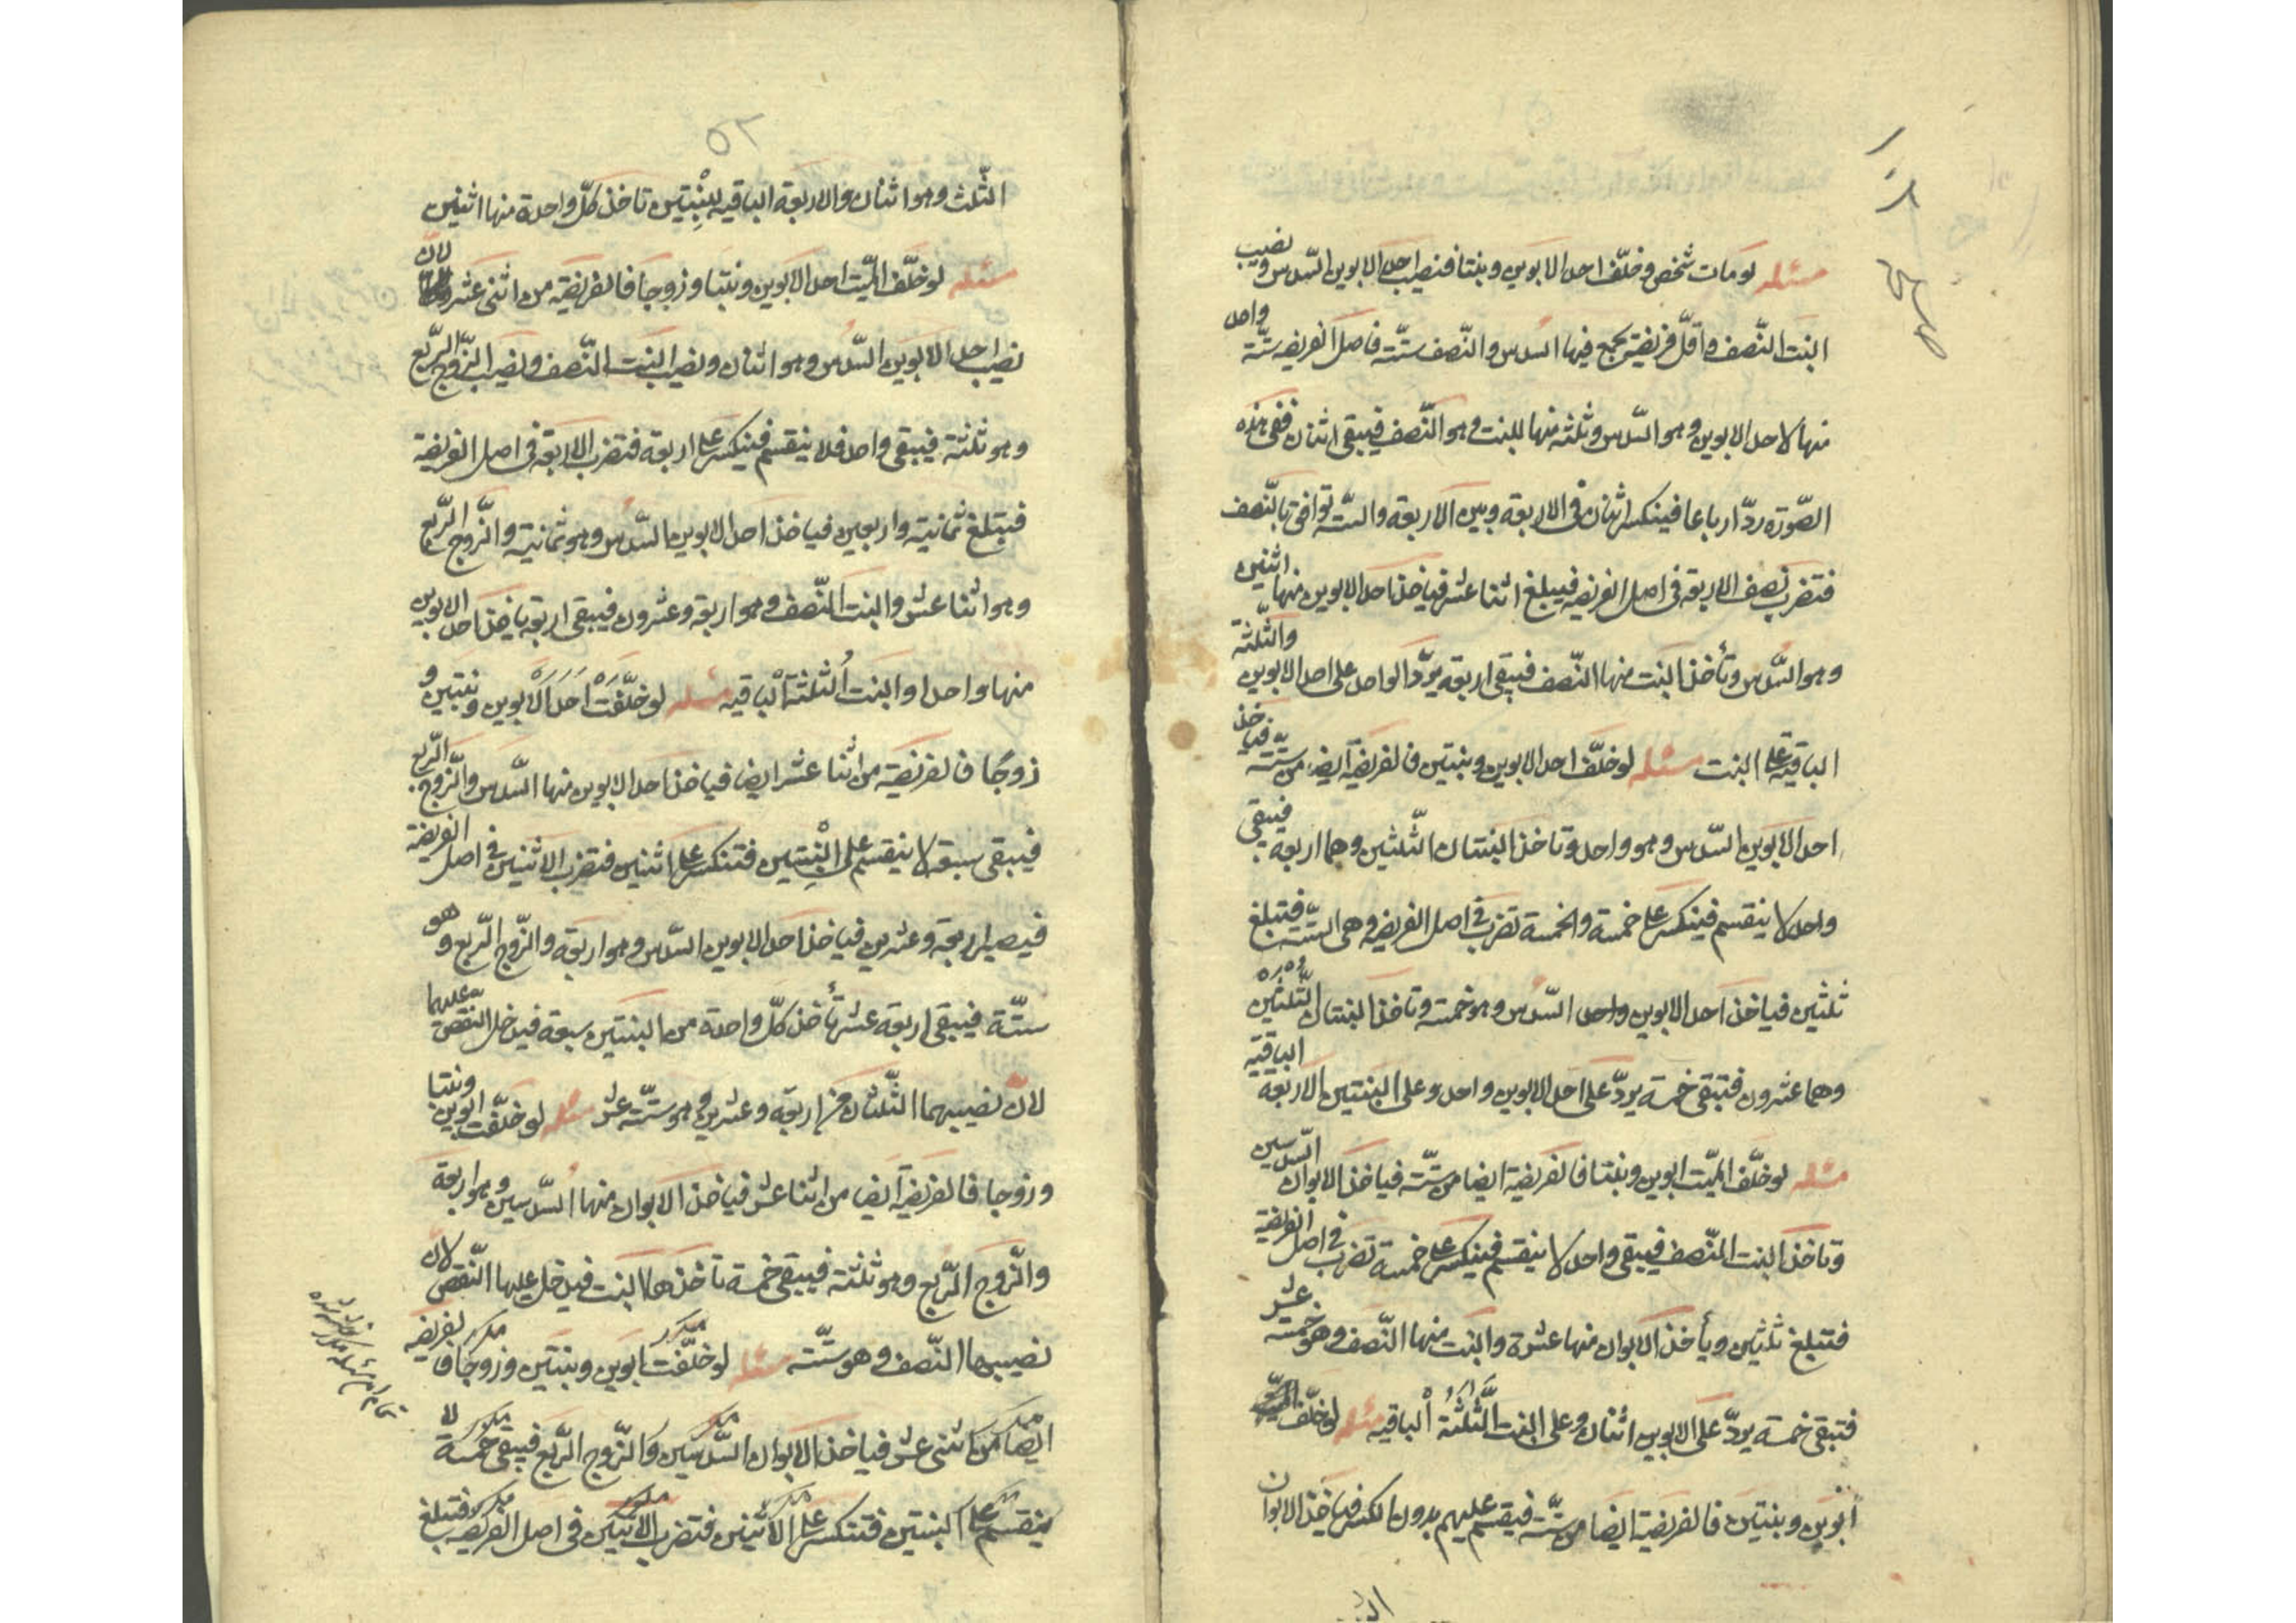 مسئله لو مات شخص و خلّف احد الابوین و بنتا فنصیب احد الابوین السّدس و نصیب
البنت النّصف و اقلّ فریضة یجمع فیها السدس و النّصف ستّة فاصل الفریضه ستّة واحد
منها لاحد الابوین و هو السّدس و ثلثه منها للبنت و هو النّصف فیبقی اثنان ففی هذه
الصّورة ردّ ارباعا فینکسر اثنان فی الاربعة و بین الاربعة و الستّة توافق بالنّصف
فتضرب نصف الاربعة فی اصل الفریضه فیبلغ اثنا عشر فیاخذ احد الابوین منها اثنین
و هو السّدس و تأخذ البنت منها النّصف فیبقی اربعة یردّ الواحد علی احد الابوین و الثّلثة
الباقیة علی البنت مسئله لو خلّف احد الابوین و بنتین فالفریضة ایضا من ستّة فیاخذ
احد الابوین السّدس و هو واحد و تاخذ البنتان الثّلثین و هما اربعة فیبقی
واحد لا ینقسم فینکسر علی خمسة و الخمسة تضرب فی اصل الفریضه و هی الستّة فتبلغ
ثلثین فیاخذ احد الابوین واحد السّدس و هو خمسة و تاخذ البنتان الثّلثین
و هما عشرون فتبقی خمسة یردّ علی احد الابوین واحد و علی البنتین الاربعة الباقیة
مسئله لو خلّف المیّت ابوین و بنتا فالفریضة ایضا من ستّة فیاخذ الابوان السّدسین
و تاخذ البنت النّصف فیبقی واحد لا ینقسم فینکسر علی خمسة تضرب فی اصل الفریضة
فتبلغ ثلثین و یأخذ الابوان منها عشرة و البنت منها النّصف و هو خمسة عشر
فتبقی خمسة یردّ علی الابوین اثنان و علی البنت الثّلثة الباقیه مسئله لو خلّف
ابوین و بنتین فالفریضة ایضا من ستّة فیقسم علیهم بدون الکسر فیاخذ الابوان
٥٢
الثّلث و هو اثنان و الاربعة الباقیه لبنتین تاخذ کلّ واحدة منها اثنین
مسئله لو خلّف المیّت احد الابوین و بنتا و زوجا فالفریضة من اثنی عشر لانّ
نصیب احد الابوین السّدس و هو اثنان و نصیب البنت النّصف و نصیب الزّوج الرّبع
و هو ثلثة فیبقی واحد فلا ینقسم فینکسر علی اربعة فتضرب الاربعة فی اصل الفریضة
فتبلغ ثمانیة و اربعین فیاخذ احد الابوین السّدس و هو ثمانیة و الزّوج الرّبع
و هو اثنا عشر و البنت النّصف و هو اربعة و عشرون فیبقی اربعة یاخذ احد الابوین
منها واحدا و البنت الثلثة الباقیه مسئله لو خلّفت احد الابوین و بنتین و
زوجا فالفریضة من اثنا عشر ایضا فیاخذ احد الابوین منها السّدس و الزّوج الرّبع
فیبقی سبعة لا ینقسم علی البنتین فتنکسر علی اثنین فتضرب الاثنین فی اصل الفریضة
فیصیر اربعة و عشرین فیاخذ احد الابوین السّدس و هو اربعة و الزّوج الرّبع و هو
ستّة فیبقی اربعة عشر تأخذ کلّ واحدة من البنتین سبعة فیدخل النّقص علیهما
لانّ نصیبهما الثّلثان من اربعة و عشرین و هو ستّة عشر مسئله لو خلّفت ابوین و بنتا
و زوجا فالفریضة ایضا من اثنا عشر فیاخذ الابوان منها السّدسین و هو اربعة
و الزّوج الرّبع و هو ثلثة فیبقی خمسة تاخذها البنت فیدخل علیها النّقص لانّ
نصیبها النّصف و هو ستّة مسئله لو خلّفت ابوین و بنتین و زوجا فالفریضه
ایضا من اثنی عشر فیاخذ الابوان السّدسین و الزّوج الرّبع فیبقی خمسة لا
ینقسم علی البنتین فتنکسر علی الاثنین فتضرب الاثنین فی اصل الفریضه فتبلغ
مکرر
مکرر